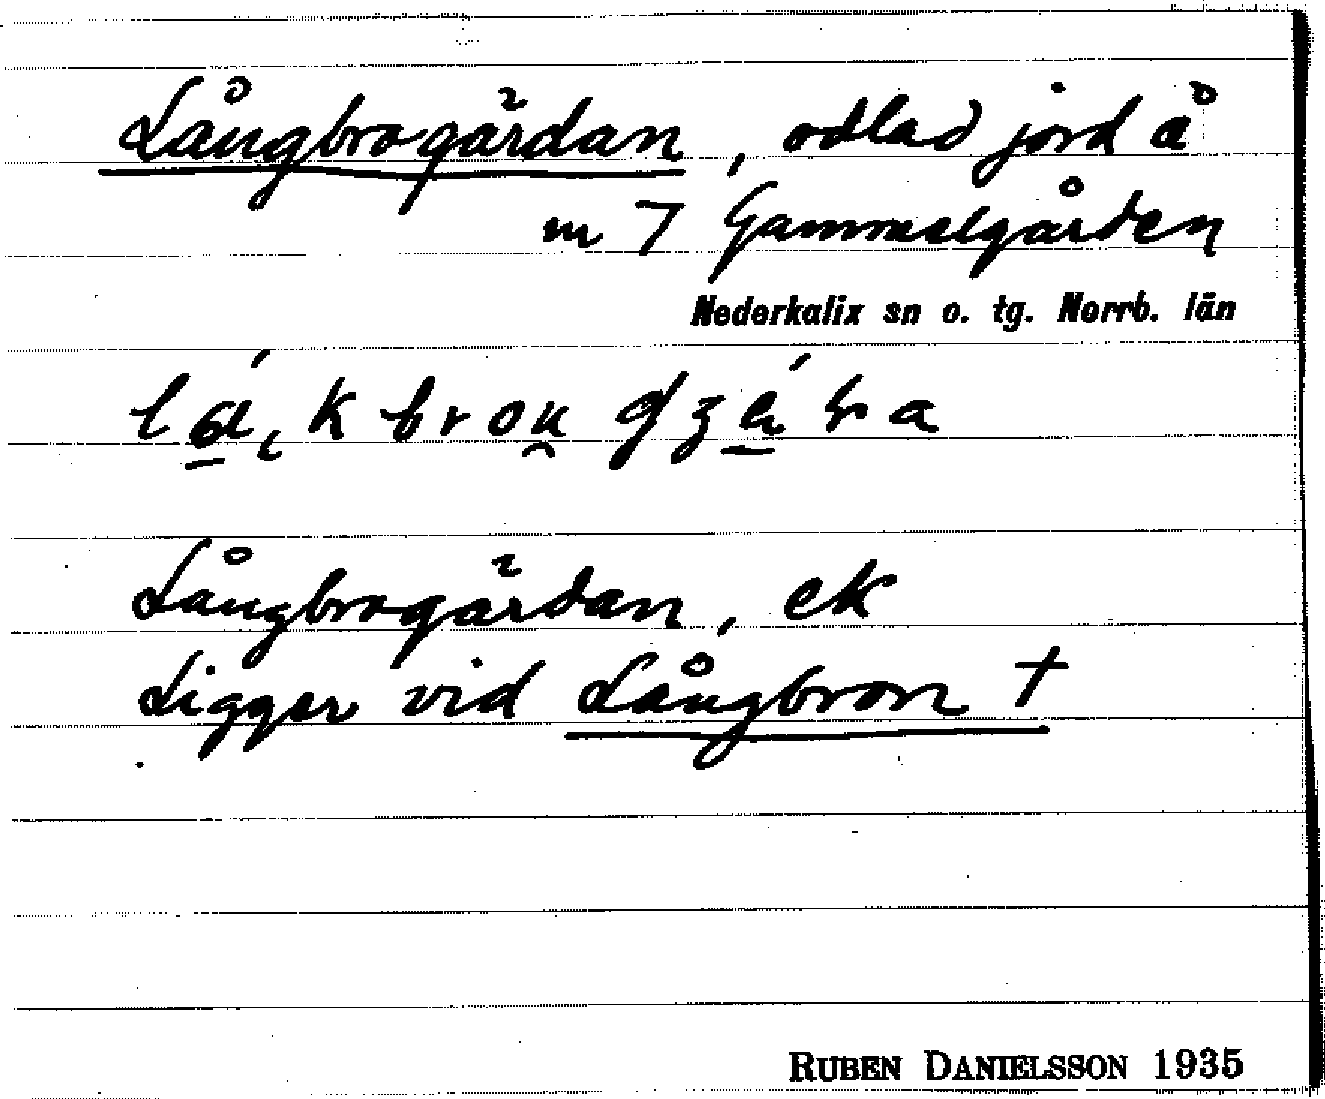 Långbrogärdan, odlad jord å
nr 7 Gammelgården
Nederkalix sn o. tg. Norrb. län
Långbrogärdan, ek
Ligger vid Långbron †
RUBEN DANIELSSON 1935